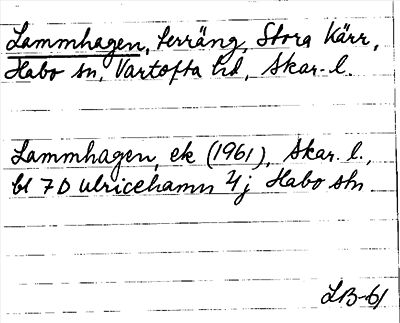 Lammhagen, terräng, Stora Kärr,
Habo sn, Vartofta hd, Skar. l.
Lammhagen, ek (1961), Skar. l.,
bl 7D Ulricehamn 4j Habo sn
LB-61